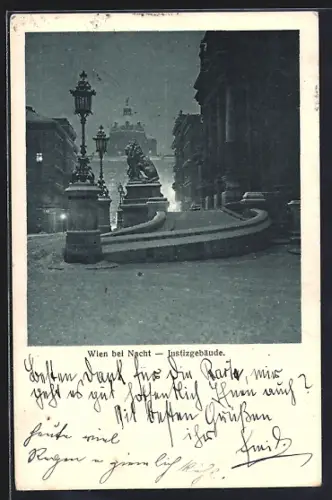 Wien bei Nacht — Justizgebäude.
Besten Dank für die Karte, mir
geht es gut hoffentlich Ihnen auch?
Mit besten Grüßen
Ihr
Emil
heute viel
Regen u ziemlich